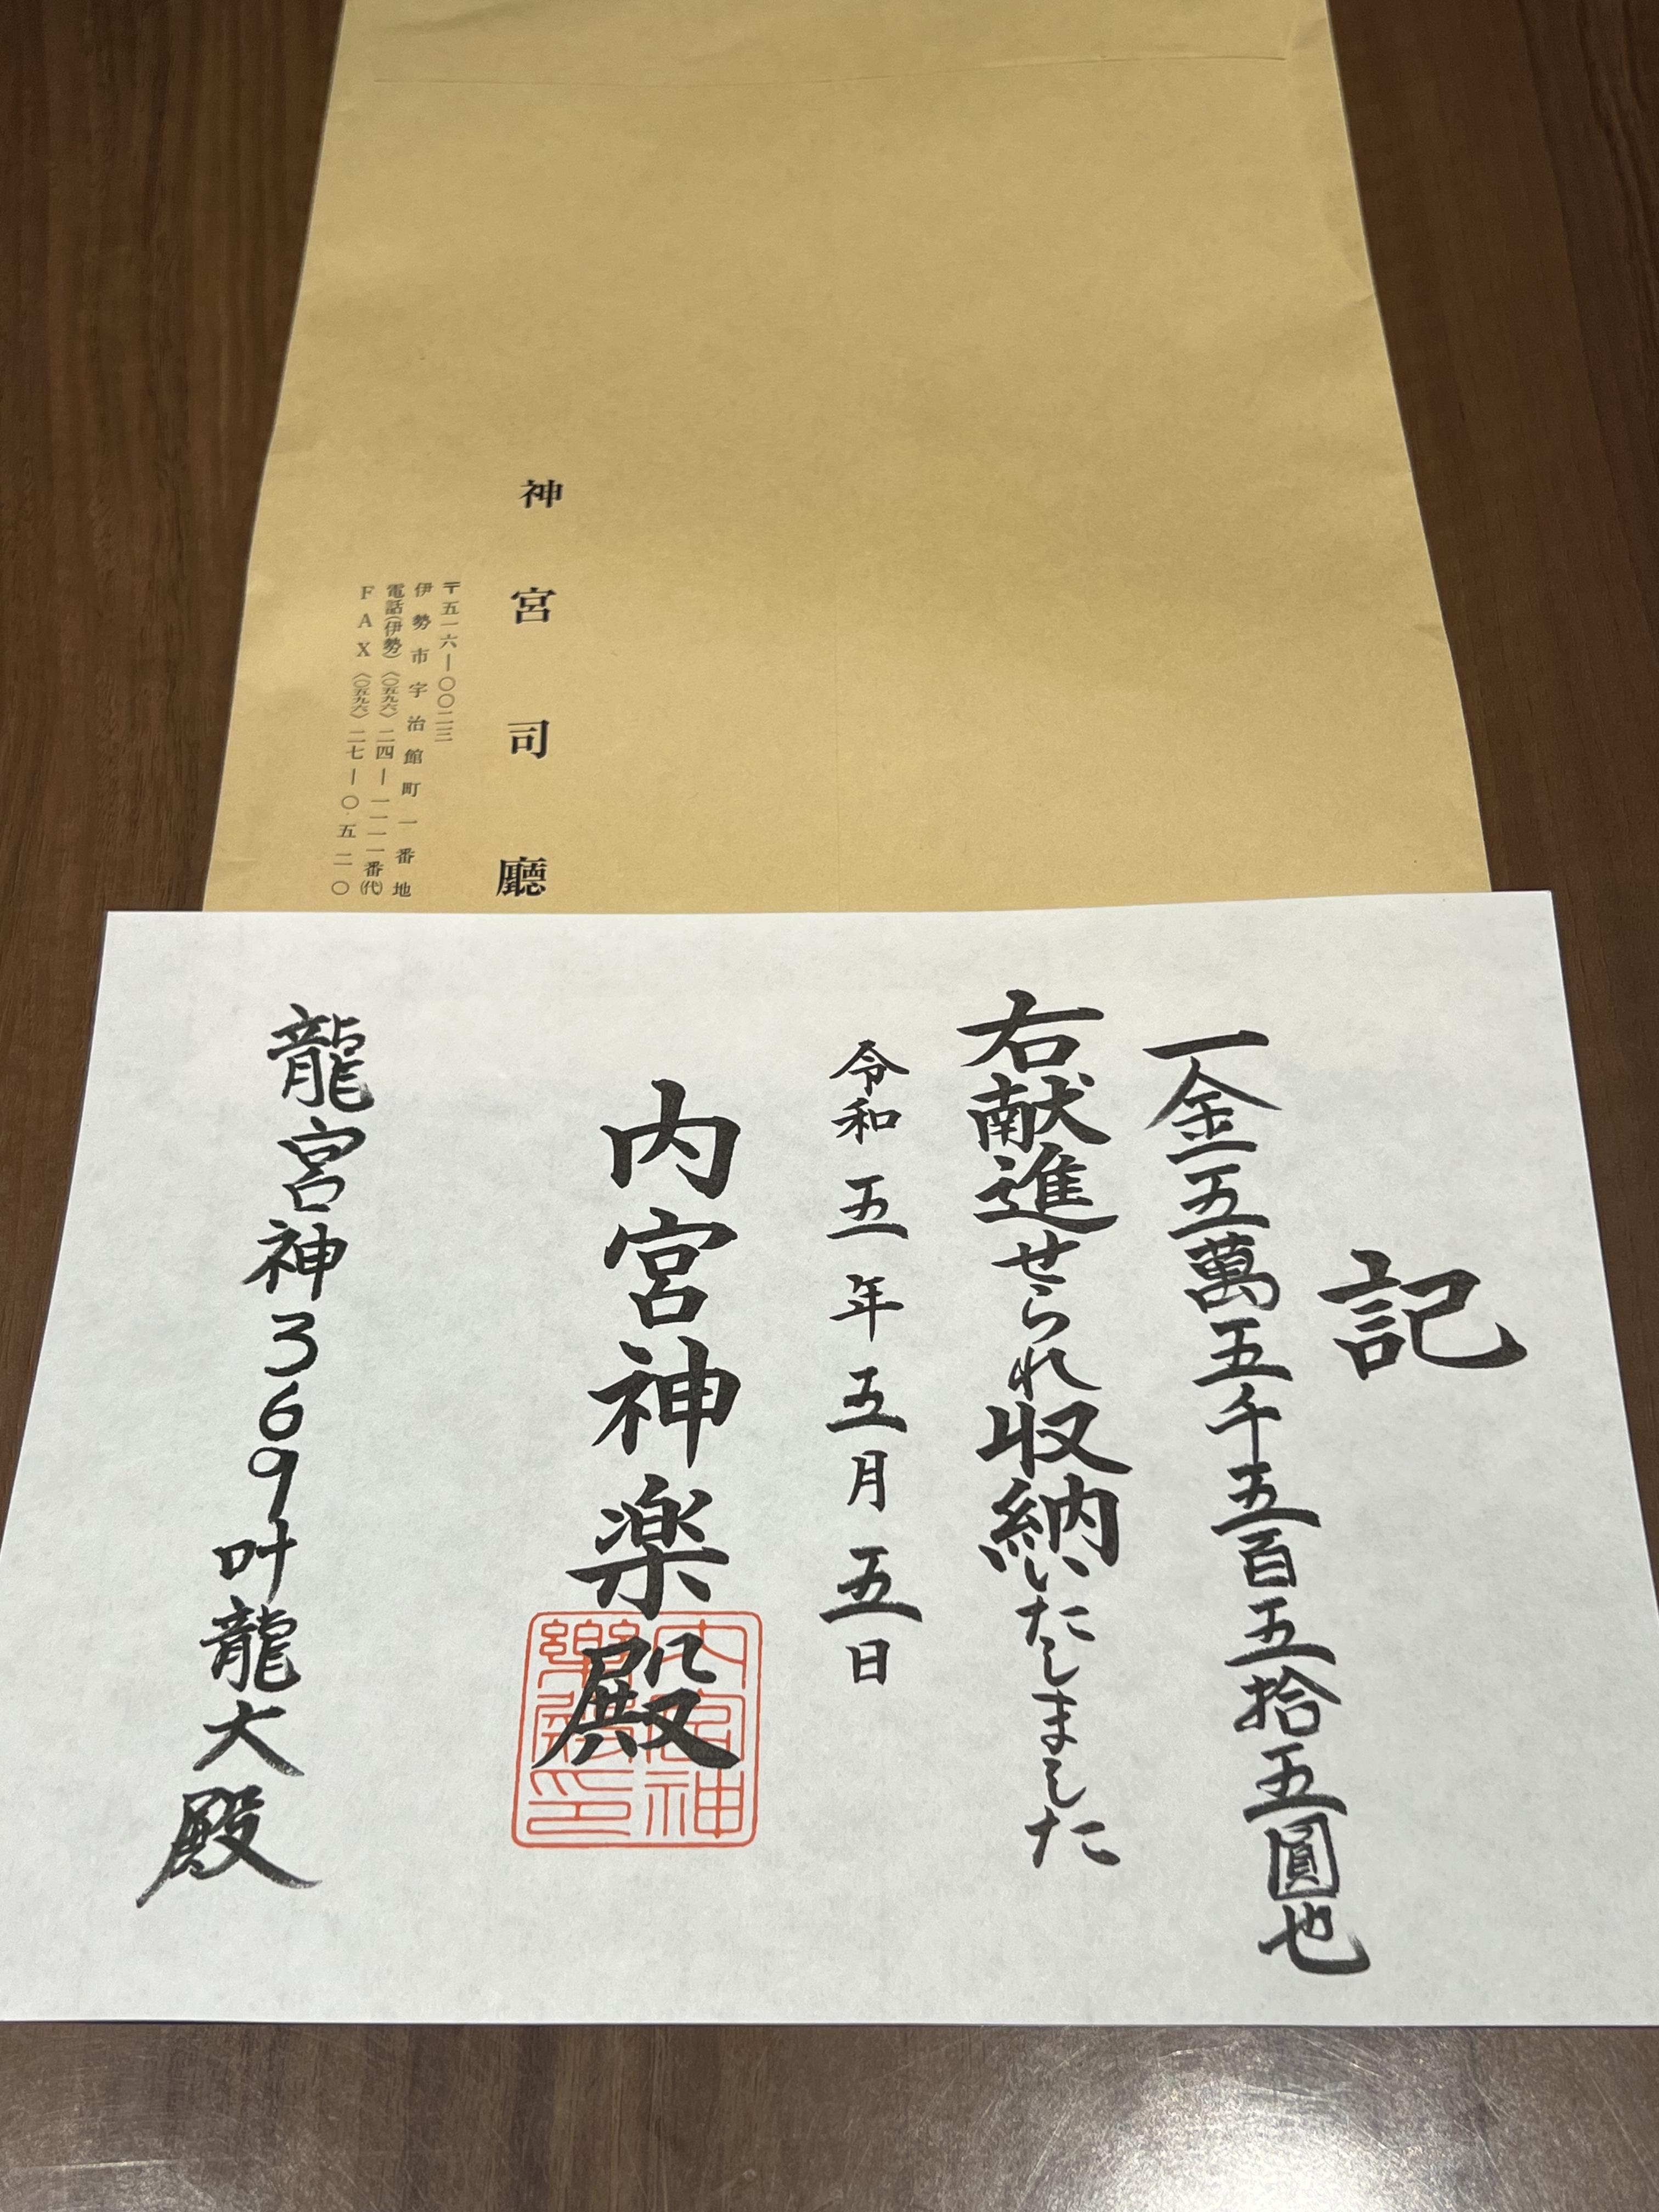 神宮司廳
〒五一六―〇〇二三
伊勢市宇治館町一番地
電話(伊勢)〈〇五九六〉二四―一一一一番(代)
FAX〈〇五九六〉二七―〇五二〇
記
一金五萬五千五百五拾五圓也
右献進せられ収納いたしました
令和五年五月五日
内宮神楽殿
内宮神
樂殿印
龍宮神369叶龍大殿